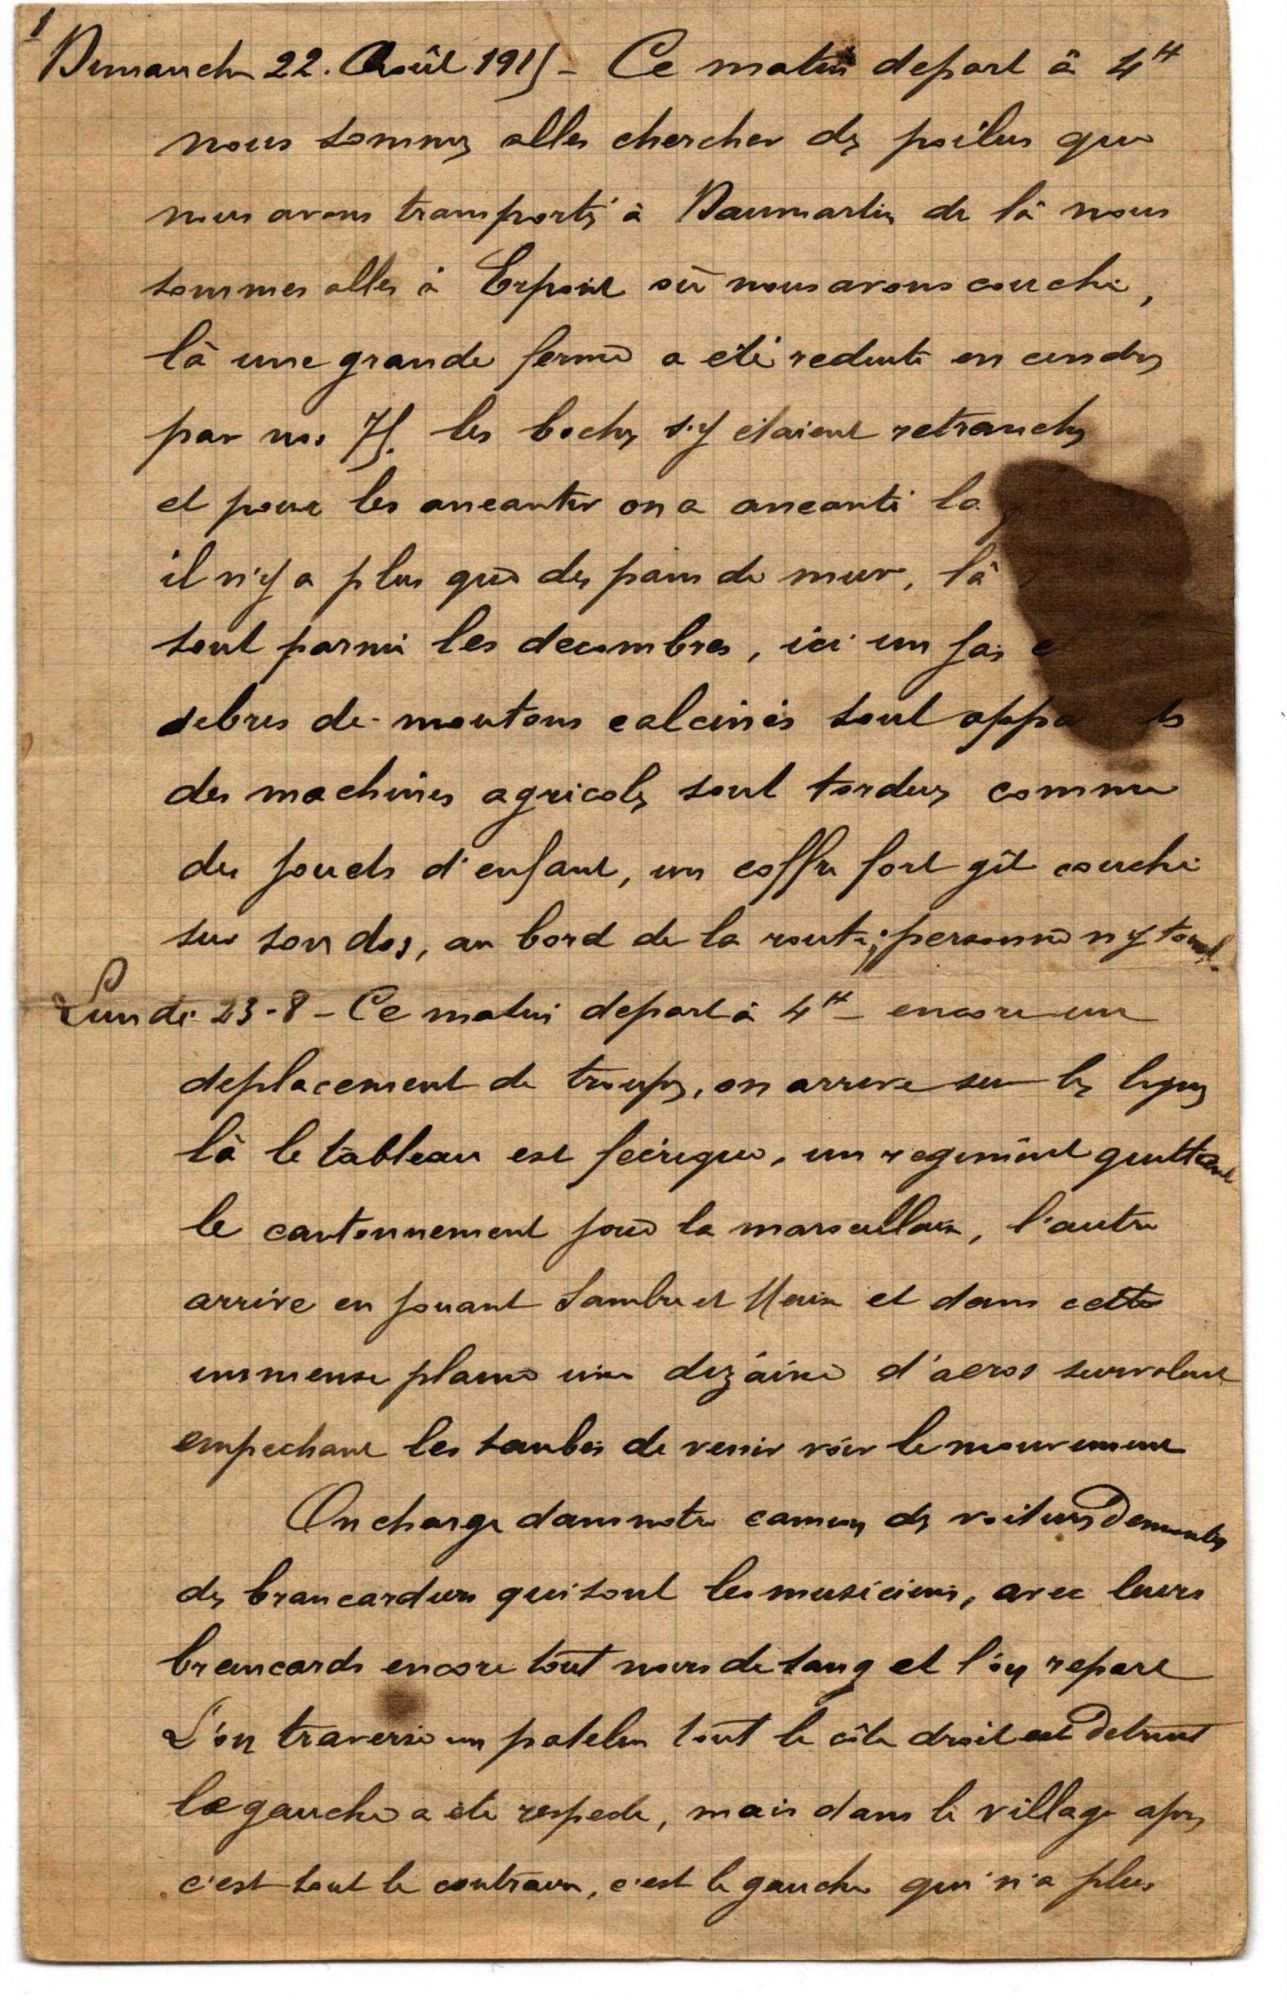 1
Dimanche 22. Août 1915 - Ce matin depart à 4H
nous sommes alles chercher des poilus que
nous avons transportés à Daumartin de là nous
sommes alles à Erpont où nous avons couché,
là une grande ferme a été reduite en cendres
par nos 75. les boches s'y étaient retranchés
et pour les aneantir on a aneanti la
il n'y a plus que des pans de mur, là
sont parmi les decombres, ici un
debris de moutons calcinés sont
des machines agricoles sont tordues comme
des jouets d'enfant, un coffre fort gît couché
sur son dos, au bord de la route; personne n'y
Lundi 23-8 - Ce matin depart à 4H - encore un
deplacement de troupes, on arrive sur les lignes
là le tableau est feérique, un regiment quittant
le cantonnement joue la marseillaise, l'autre
arrive en jouant Sambre et Meuse et dans cette
immense plaine une dizaine d'aeros survolent
empechant les taubes de venir voir le mouvement
On charge dans notre camion des voitures Demontées
des brancardiers qui sont les musiciens, avec leurs
brancards encore tout noirs de sang et l'on repart
L'on traverse un patelin tout le côté droit est Detruit
la gauche a été respecté, mais dans le village apres
c'est tout le contraire, c'est la gauche qui n'a plus